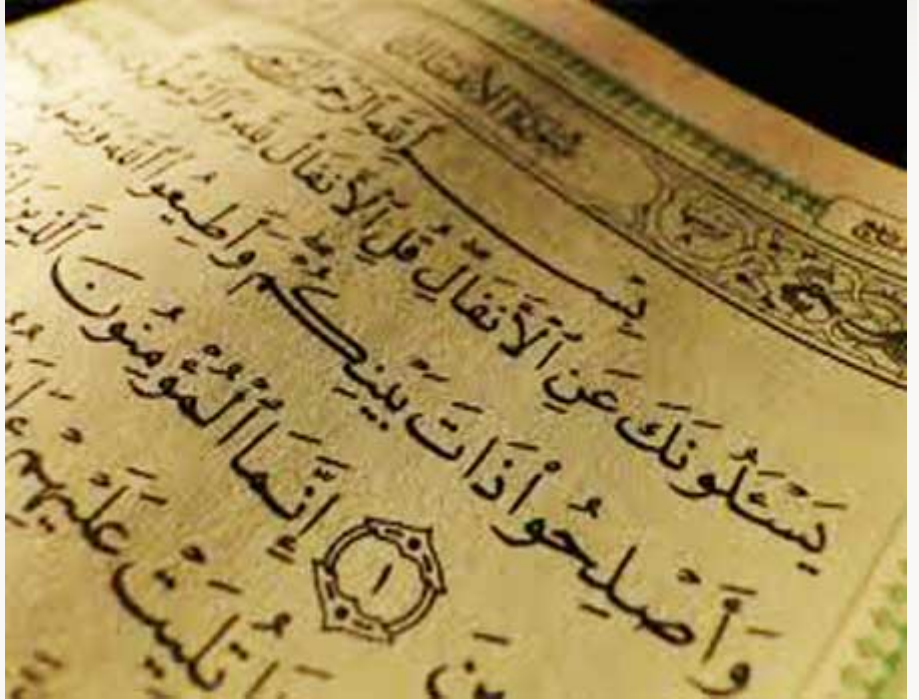 سُورَةُ الأَنفَالِ
بِسْمِ ٱللَّهِ ٱلرَّحْمَٰنِ ٱلرَّحِيمِ
يَسْـَٔلُونَكَ عَنِ ٱلْأَنفَالِ قُلِ ٱلْأَنفَالُ لِلَّهِ وَٱلرَّسُولِ
وَأَصْلِحُوا۟ ذَاتَ بَيْنِكُمْ وَأَطِيعُوا۟ ٱللَّهَ وَرَسُولَهُۥٓ
١ إِنَّمَا ٱلْمُؤْمِنُونَ ٱلَّذِينَ
تُلِيَتْ عَلَيْهِمْ